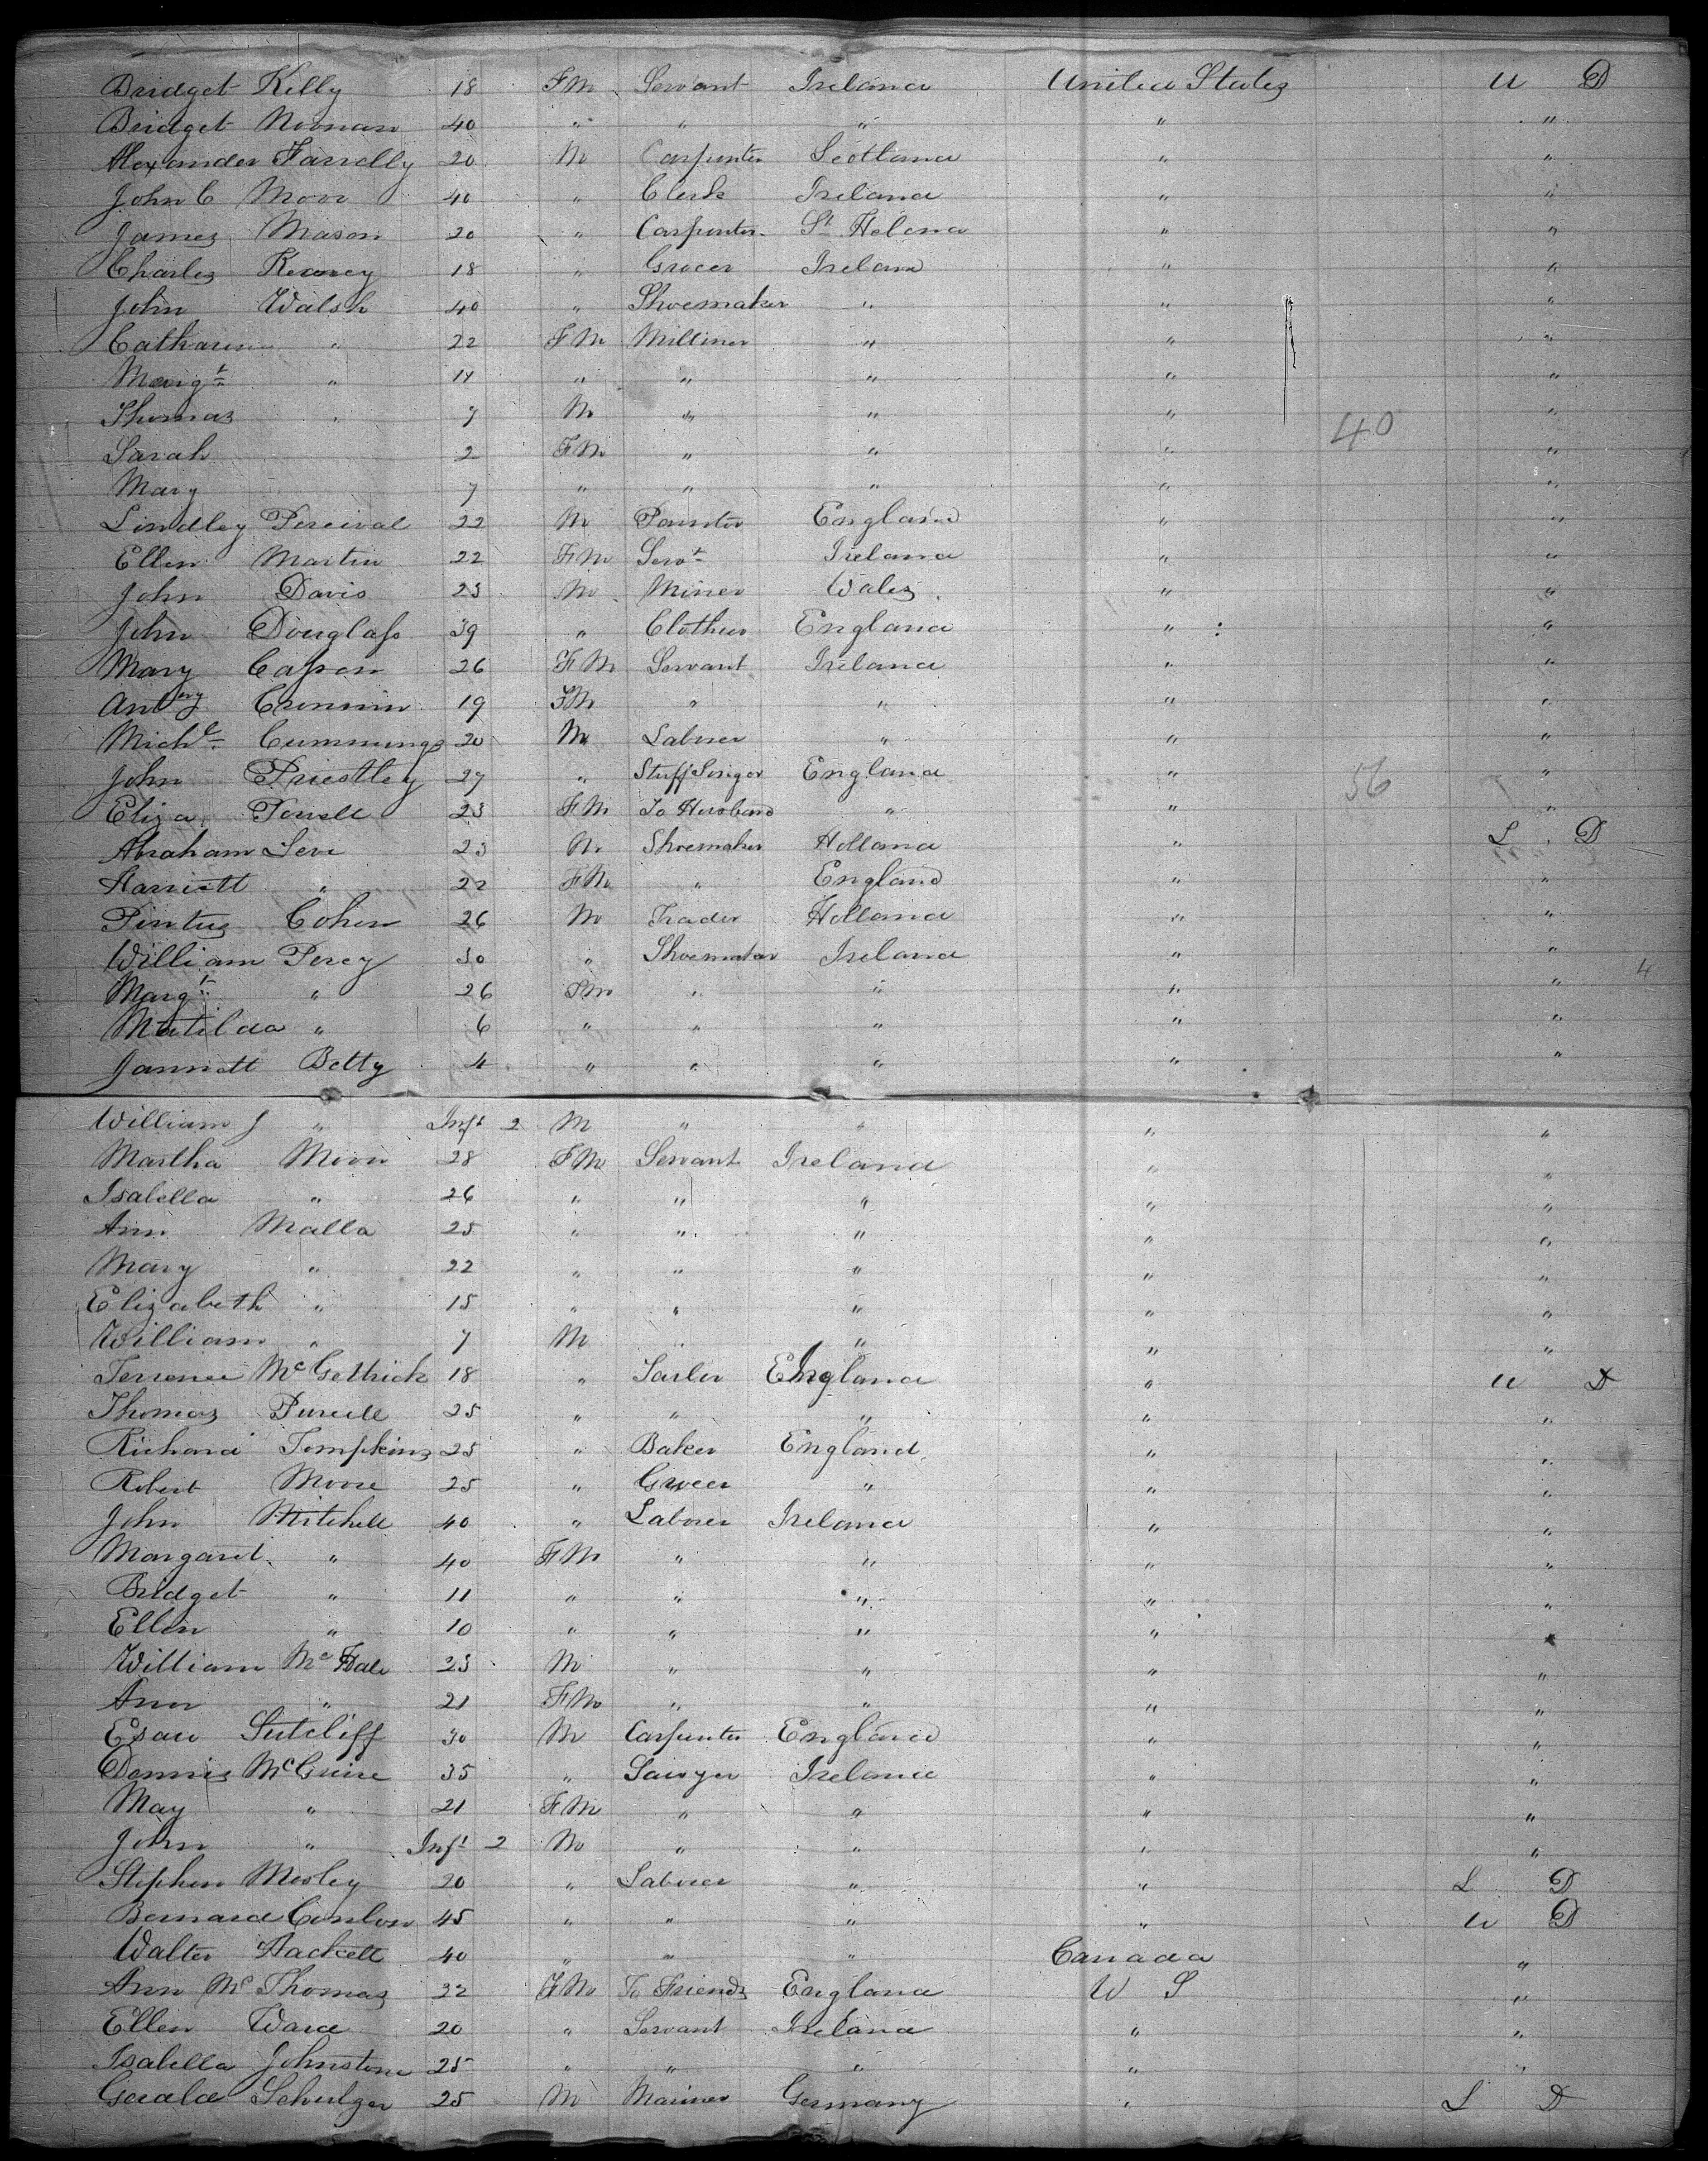 Bridget Kelly 18 FM Servant Ireland United States U D
Bridget Noonan 40 " " " " "
Alexander Farrelly 20 M Carpenter Scotland " "
John C Moor 40 " Clerk Ireland " "
James Mason 20 " Carpenter St Helena " "
Charles 18 " Grocer Ireland " "
John Walsh 40 " Shoemaker " " "
Catharin " 22 FM Milliner " " "
Margt " 14 " " " " "
Thomas " 7 M " " " "
40
Sarah 2 FM " " " "
Mary 7 " " " " "
Lindley Percival 22 M Painter England " "
Ellen Martin 22 FM Servt Ireland " "
John Davis 23 M Miner Wales " "
John Douglass 39 " Clothier England " "
Mary Casson 26 FM Servant Ireland " "
Antony Cronnin 19 FM " " " "
Michl Cummings 20 M Laborer " " "
John Priestley 27 " Stuff Singer England " "
56
Eliza Powell 23 FM To Husband " " "
Abraham Levi 23 M Shoemaker Holland " L D
Harriett " 22 FM " England " "
Pintus Cohen 26 M Trader Holland " "
William Percy 30 " Shoemaker Ireland " "
4
Margt " 26 FM " " " "
Matilda " 6 " " " " "
Jannett Betty 4 " " " " "
William J " Inft 2 M " " " "
Martha Moor 28 FM Servant Ireland " "
Isabella " 26 " " " " "
Ann Malla 25 " " " " "
Mary " 22 " " " " "
Elizabeth " 15 " " " " "
William " 7 M " " " "
Terrence McGettrick 18 " Tailor England " U D
Thomas Purcell 25 " " " " "
Richard Tompkins 25 " Baker England " "
Robert Moore 25 " Grocer " " "
John Mitchell 40 " Laborer Ireland " "
Margaret " 40 FM " " " "
Bridget " 11 " " " " "
Ellen " 10 " " " " "
William McHale 23 M " " " "
Ann " 21 FM " " " "
Esau Sutcliff 30 M Carpenter England " "
Dennis McGuire 35 " Sawyer Ireland " "
May " 21 FM " " " "
John " Inft 2 M " " " "
Stephen Mosley 20 " Laborer " " L D
Bernard Conlon 45 " " " " U D
Walter Hackett 40 " " " Canada "
Ann McThomas 22 FM To Friends England U S "
Ellen Ward 20 " Servant Ireland " "
Isabella Johnstone 25 " " " " "
Gerald Schulzer 25 M Mariner Germany " L D